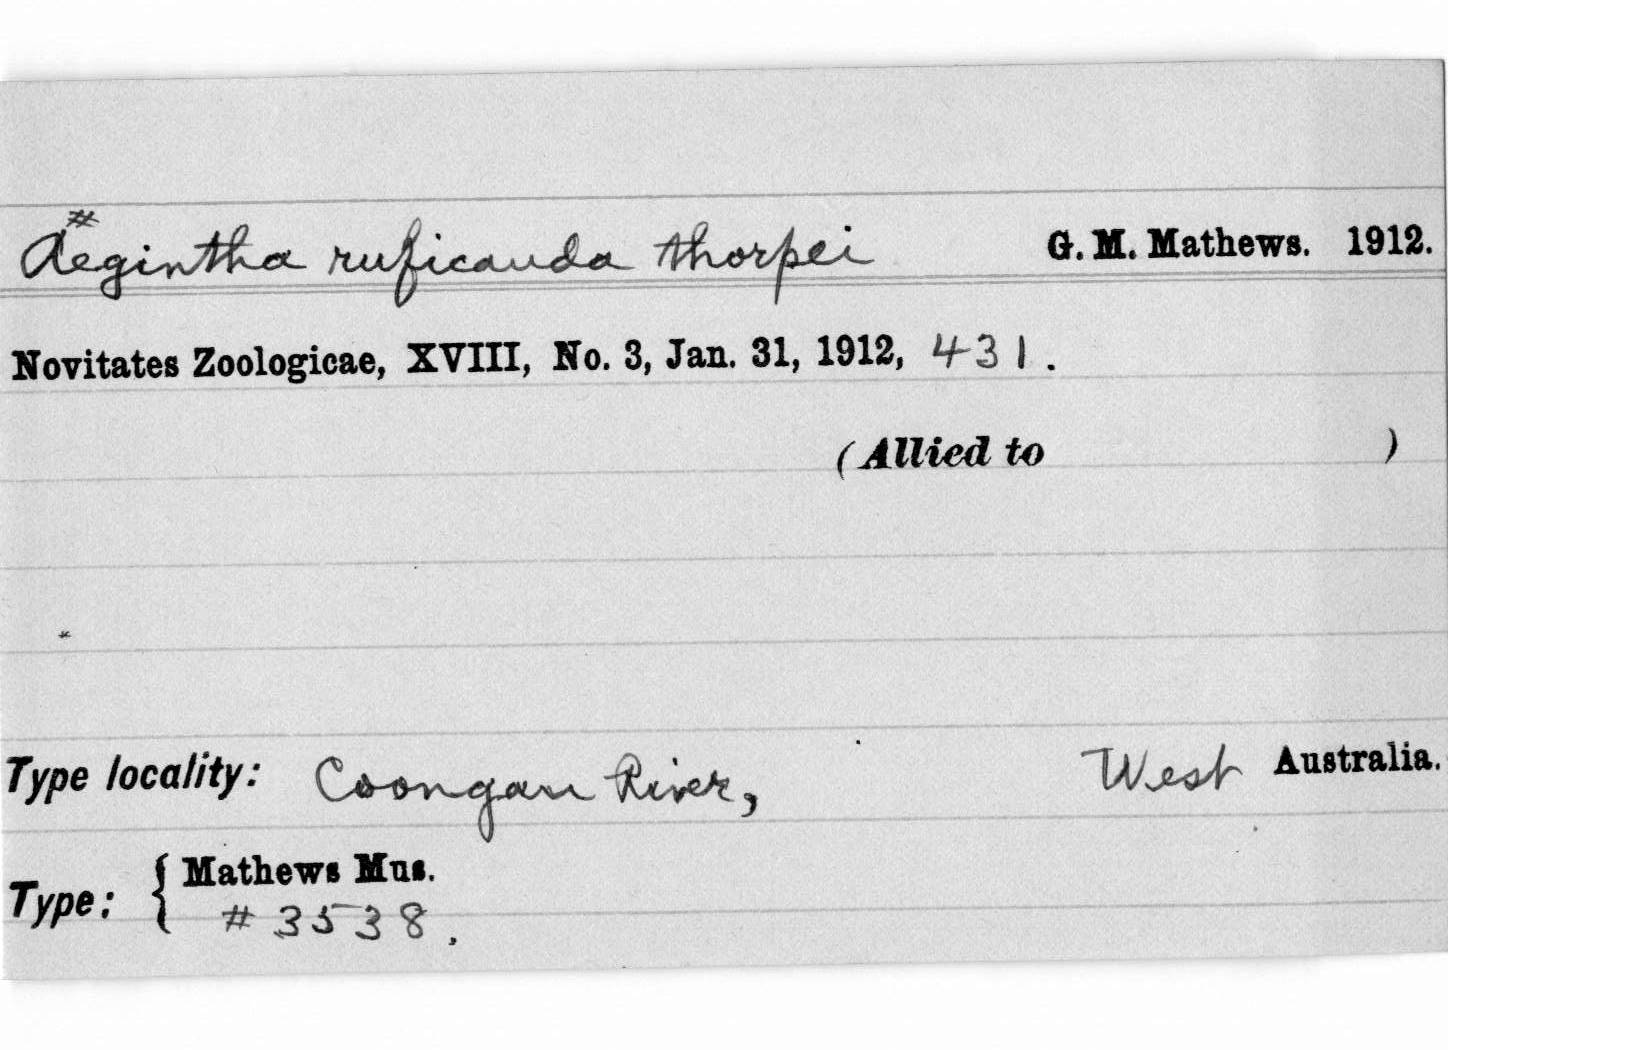 #
Aegintha ruficauda thorpei G. M. Mathews. 1912.
Novitates Zoologicae, XVIII, No. 3, Jan. 31, 1912, 431.
(Allied to )
Type locality: Coongan River, West Australia.
Type: { Mathews Mus.
# 3538.